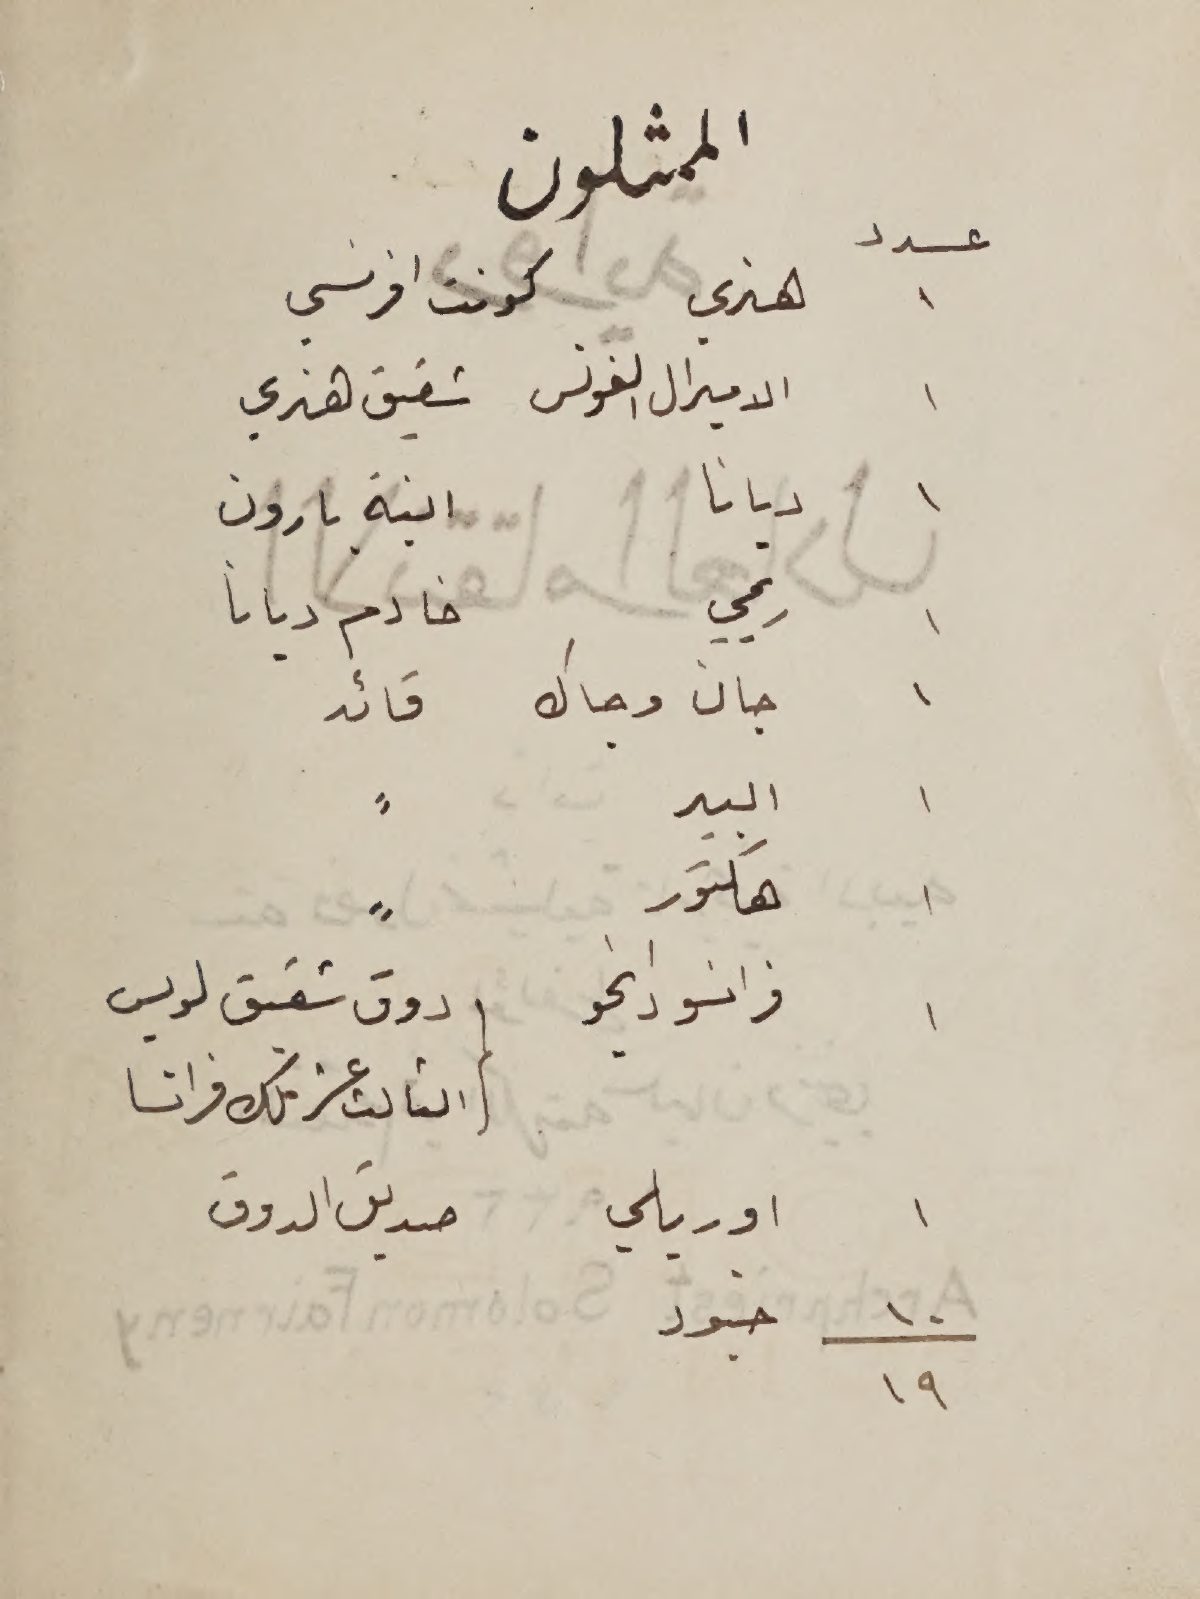 الممثلون
عدد
١ هنري كونت افرنسي
١ الاميرال الفونس شقيق هنري
١ ديانا ابنة بارون
١ ريمي خادم ديانا
١ جان وجاك قائد
١ البير "
١ هكتور "
١ فرانسو دانجو دوق شقيق لويس
الثالث عشر ملك فرانسا
١ اوريلي صديق الدوق
١٠ جنود
١٩